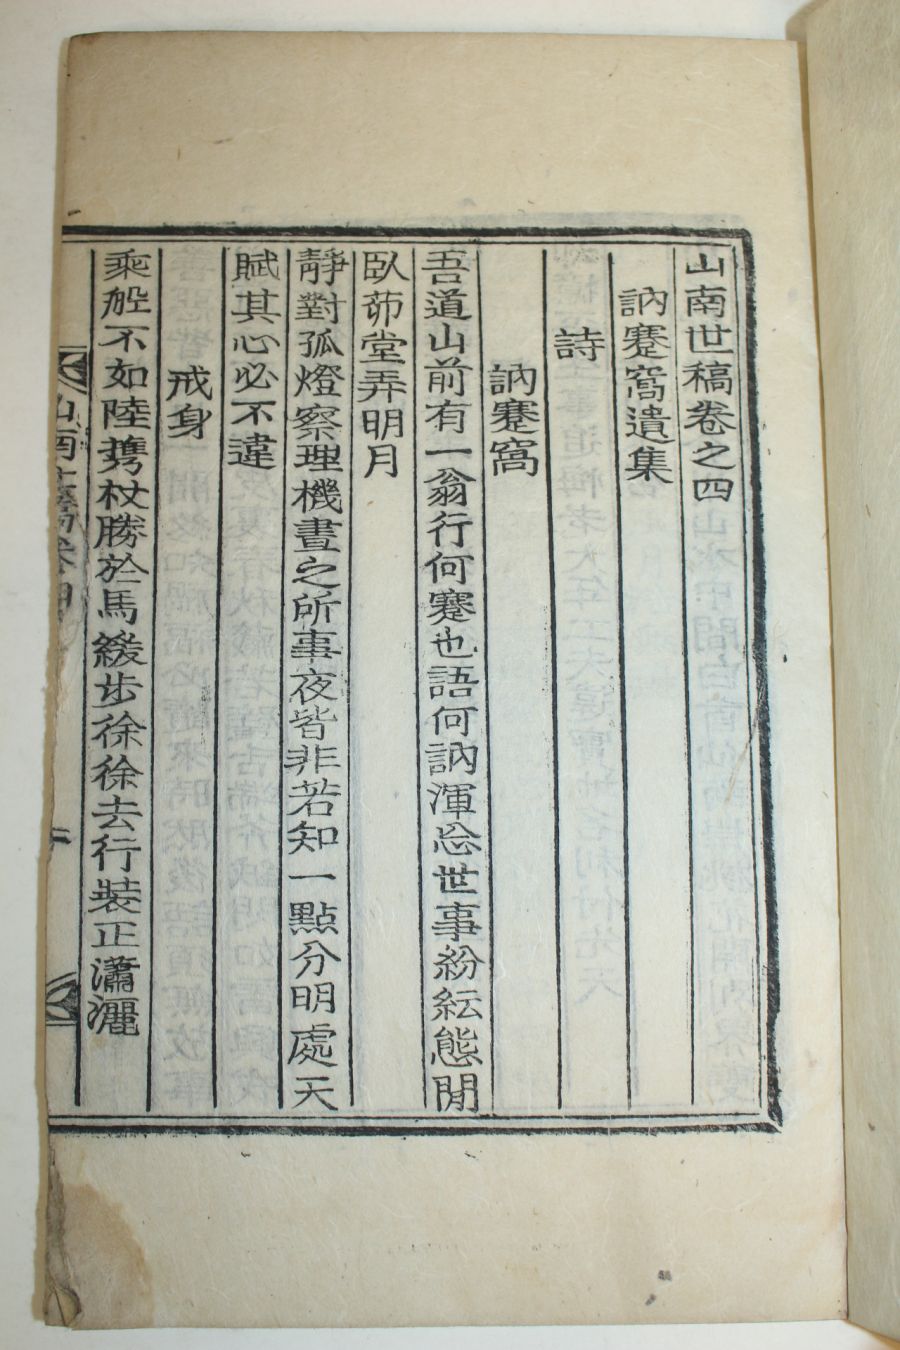 山南世稿卷之四
訥蹇窩遺集
詩
訥蹇窩
吾道山前有一翁行何蹇也語何訥渾忘世事紛紜態閒
臥茆堂弄明月
靜對孤燈察理機晝之所事夜皆非若知一點分明處天
賦其心必不違
戒身
乘舩不如陸携杖勝於馬緩步徐徐去行裝正瀟灑
山南世稿卷四